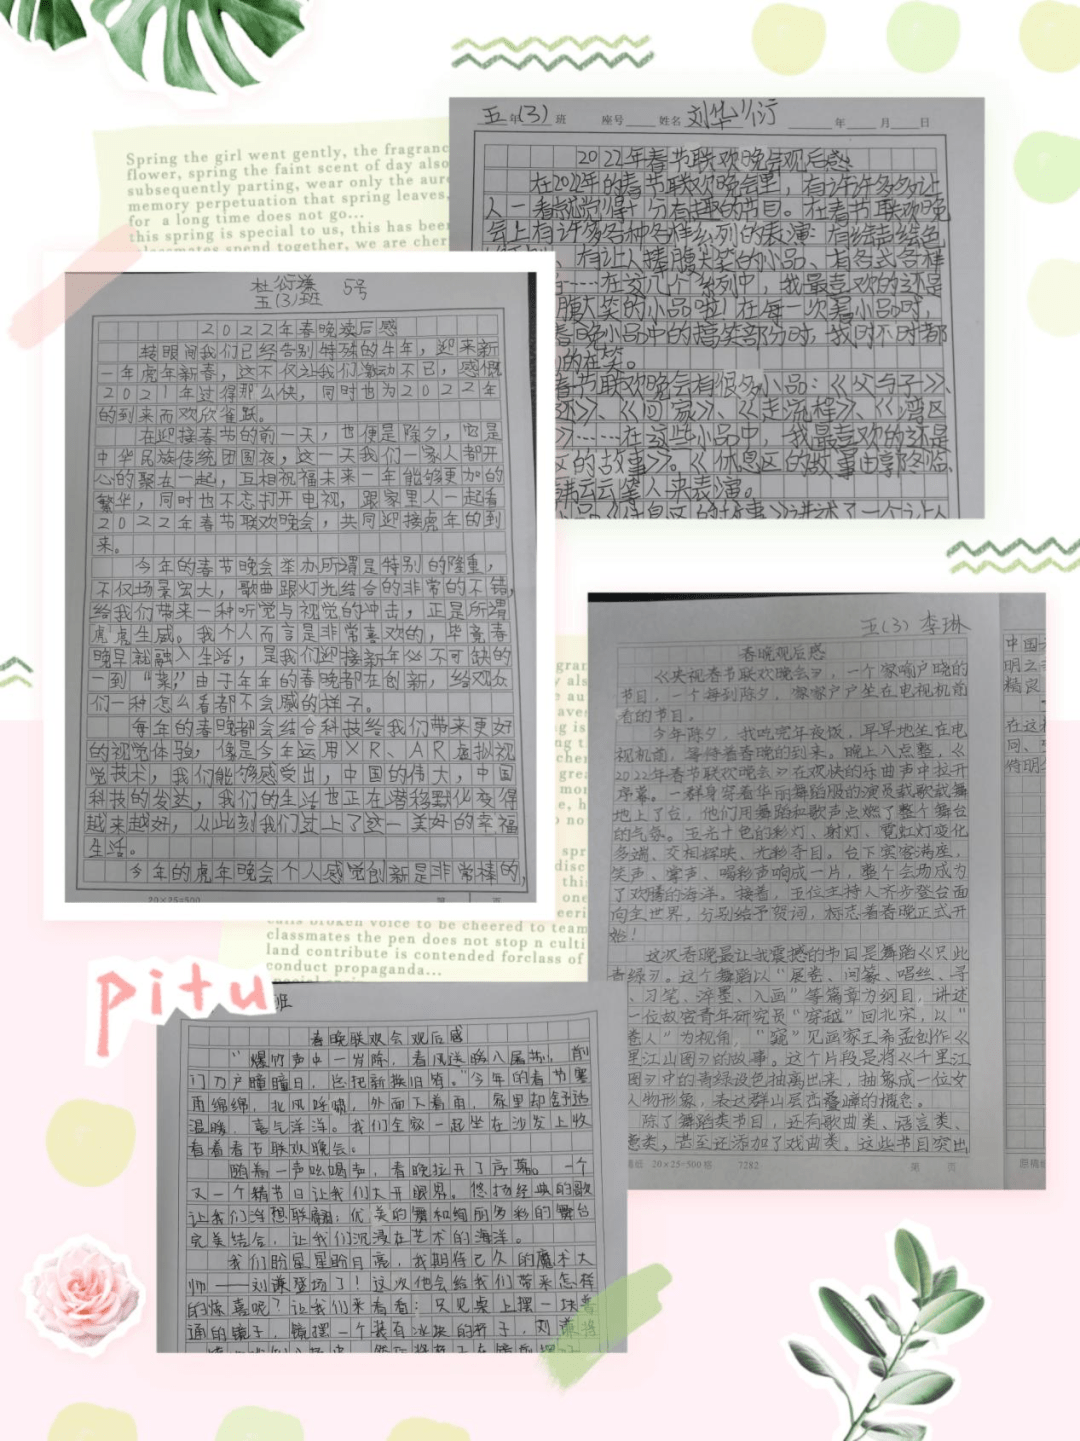 Spring the girl went gently, the fragranc
flower, spring the faint scent of day also
subsequently parting, wear only the aure
memory perpetuation that spring leaves,
for a long time does not go...
this spring is special to us, this has been
classmates spend together, we are cher
五年(3)班 座号 姓名 刘华 年 月 日
2022年春节联欢晚会观后感
在2022年的春节联欢晚会里，有许许多多让
人一看就觉得十分有趣的节目。在春节联欢晚
会上有许多各种各样系列的表演：有绘声绘色
、有让人捧腹大笑的小品、有各式各样
……在这几个系列中，我最喜欢的还是
腹大笑的小品啦！在每一次看小品时，
春晚小品中的搞笑部分时，我时不时都
的在笑。
春节联欢晚会有很多小品：《父与子》、
还》、《回家》、《走流程》、《湾区
》……在这些小品中，我最喜欢的还是
区的故事》。《休息区的故事由郭冬临、
韩云云等人来表演。
小品《休息区的故事》讲述了一个让人
杜衍溱 5号
五(3)班
2022年春晚读后感
转眼间我们已经告别特殊的牛年，迎来新
一年虎年新春，这不仅让我们激动不已，感慨
2021年过得那么快，同时也为2022年
的到来而欢欣雀跃。
在迎接春节的前一天，也便是除夕，它是
中华民族传统团圆夜，这一天我们一家人都开
心的聚在一起，互相祝福未来一年能够更加的
繁华，同时也不忘打开电视，跟家里人一起看
2022年春节联欢晚会，共同迎接虎年的到
来。
今年的春节晚会举办所谓是特别的隆重，
不仅场景宏大，歌曲跟灯光结合的非常的不错，
给我们带来一种听觉与视觉的冲击，正是所谓
虎虎生威。我个人而言是非常喜欢的，毕竟春
晚早就融入生活，是我们迎接新年必不可缺的
一到“菜”，由于年年的春晚都在创新，给观众
们一种怎么看都不会腻的样子。
每年的春晚都会结合科技给我们带来更好
的视觉体验，像是今年运用XR、AR虚拟视
觉技术，我们能够感受出，中国的伟大，中国
科技的发达，我们的生活也正在潜移默化变得
越来越好，从此刻我们过上了这一美好的幸福
生活。
今年的虎年晚会个人感觉创新是非常棒的，
20×25=500 第 页
五(3) 李琳
春晚观后感
《央视春节联欢晚会》，一个家喻户晓的
节目，一个每到除夕，家家户户坐在电视机前
看的节目。
今年除夕，我吃完年夜饭，早早地坐在电
视机前，等待着春晚的到来。晚上八点整，《
2022年春节联欢晚会》在欢快的乐曲声中拉开
序幕。一群身穿着华丽舞蹈服的演员载歌载舞
地上了台，他们用舞蹈和歌声点燃了整个舞台
的气氛。五光十色的彩灯、射灯、霓虹灯变化
多端、交相辉映、光彩夺目。台下宾客满座，
笑声、掌声、喝彩声响成一片，整个会场成为
了欢腾的海洋。接着，五位主持人齐步登台面
向全世界，分别给予贺词，标志着春晚正式开
始！
这次春晚最让我震撼的节目是舞蹈《只此
青绿》。这个舞蹈以“展卷、问篆、唱丝、寻
、习笔、淬墨、入画”等篇章为纲目，讲述
一位故宫青年研究员“穿越”回北宋，以“
卷人”为视角，“窥”见画家王希孟创作《
里江山图》的故事。这个片段是将《千里江
图》中的青绿设色抽离出来，抽象成一位女
人物形象，表达群山层峦叠嶂的概念。
除了舞蹈类节目，还有歌曲类、语言类、
类，甚至还添加了戏曲类。这些节目突出
稿纸 20×25=500格 7282 第 页
中国
明之
精良
在这
同、
特明
原稿
calls broken voice to be cheered to team
classmates the pen does not stop n culti
land contribute is contended forclass of
conduct propaganda...
pitu
班
春晚联欢会观后感
“爆竹声中一岁除，春风送暖入屠苏，前
门万户曈曈日，总把新换旧符。”今年的春节寒
雨绵绵，北风呼啸，外面下着雨，家里却舒适
温暖，喜气洋洋。我们全家一起坐在沙发上收
看着春节联欢晚会。
随着一声吆喝声，春晚拉开了序幕。一个
又一个精节目让我们大开眼界。悠扬经典的歌
让我们浮想联翩；优美的舞和绚丽多彩的舞台
完美结合，让我们沉浸在艺术的海洋。
我们盼星星盼月亮，我期待已久的魔术大
师——刘谦登场了！这次他会给我们带来怎样
的惊喜呢？让我们来看看：只见桌上摆一块普
通的镜子，镜摆一个装有冰块的杯子，刘谦将